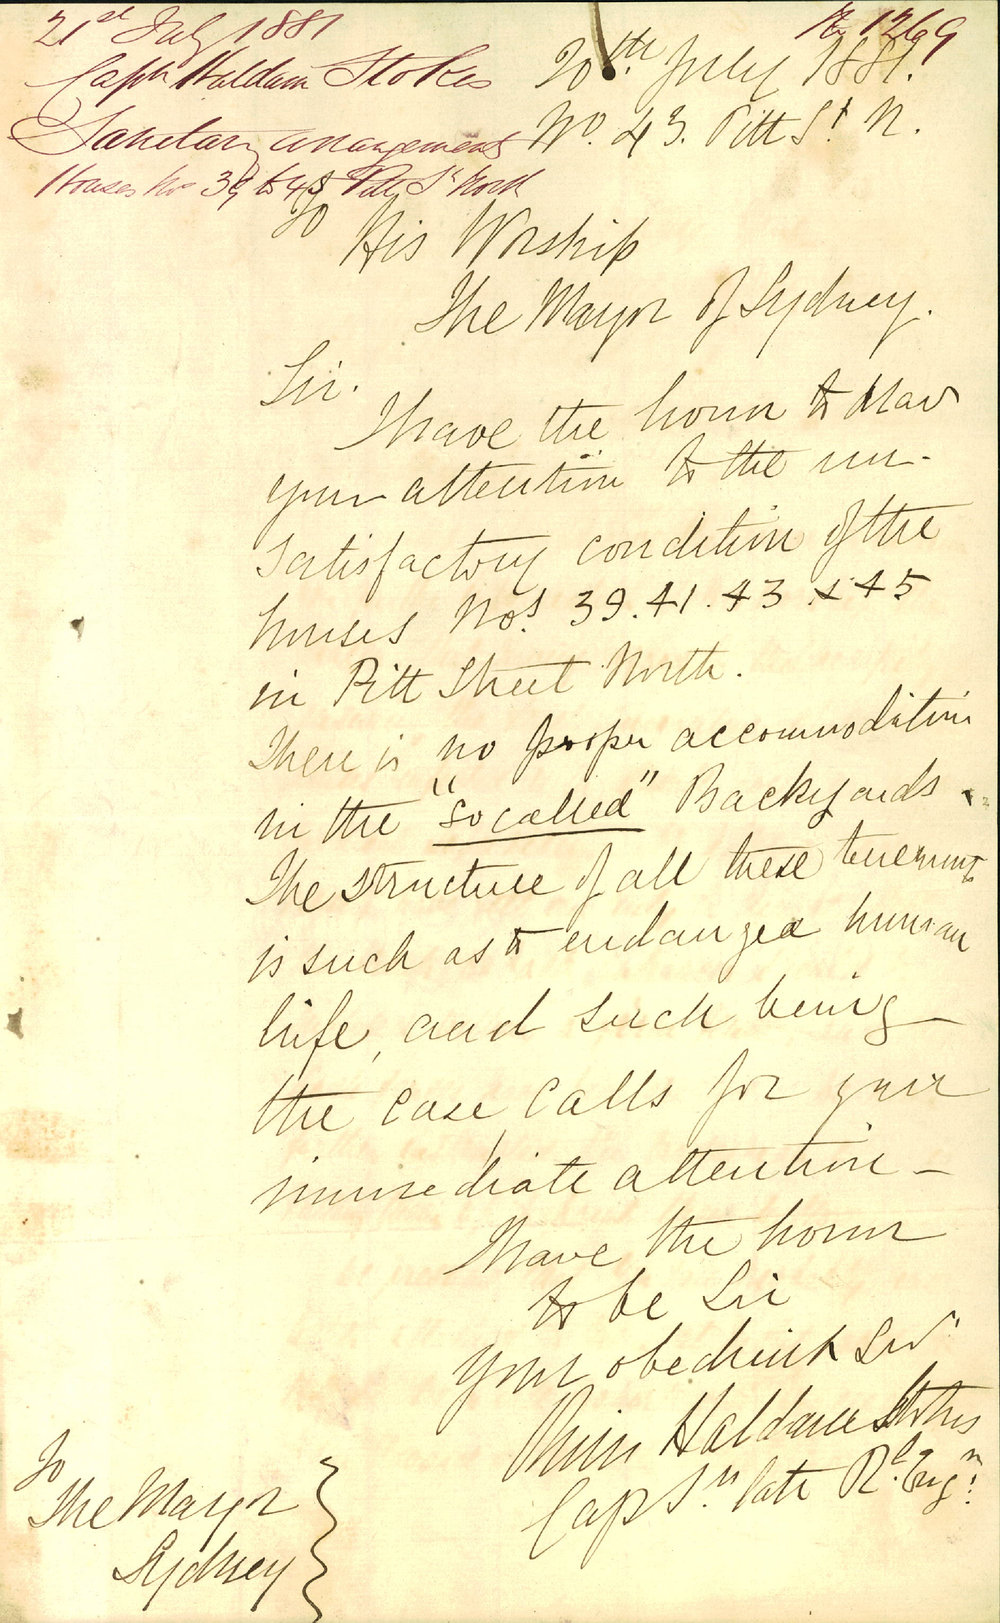 21st July 1881
Capn Haldane Stokes
Sanitary arrangements
Houses Nos 39 to 45 Pitt St North
1269
20th July 1881.
No. 43. Pitt St. N.
To
His Worship
The Mayor of Sydney.
Sir.
I have the honor to draw
your attention to the un-
satisfactory condition of the
houses Nos. 39. 41. 43 & 45
in Pitt Street North.
There is no proper accommodation
in the "so called" Backyards -
The structure of all these tenements
is such as to endanger human
life, and such being
the case calls for your
immediate attention -
I have the honor
to be Sir
Your obedient Servt
Haldane Stokes
Capt. late Rl. Engn.
To
The Mayor
Sydney